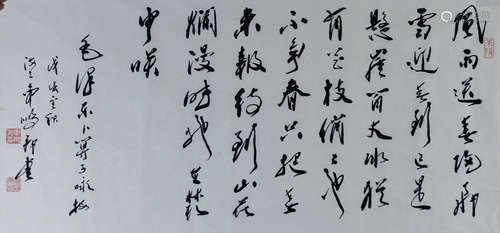 風雨送春歸飛
雪迎春到已是
懸崖百丈冰猶
有花枝俏俏也
不爭春只把春
來報待到山花
爛漫時她在叢
中咲
毛澤東卜算子咏梅
書